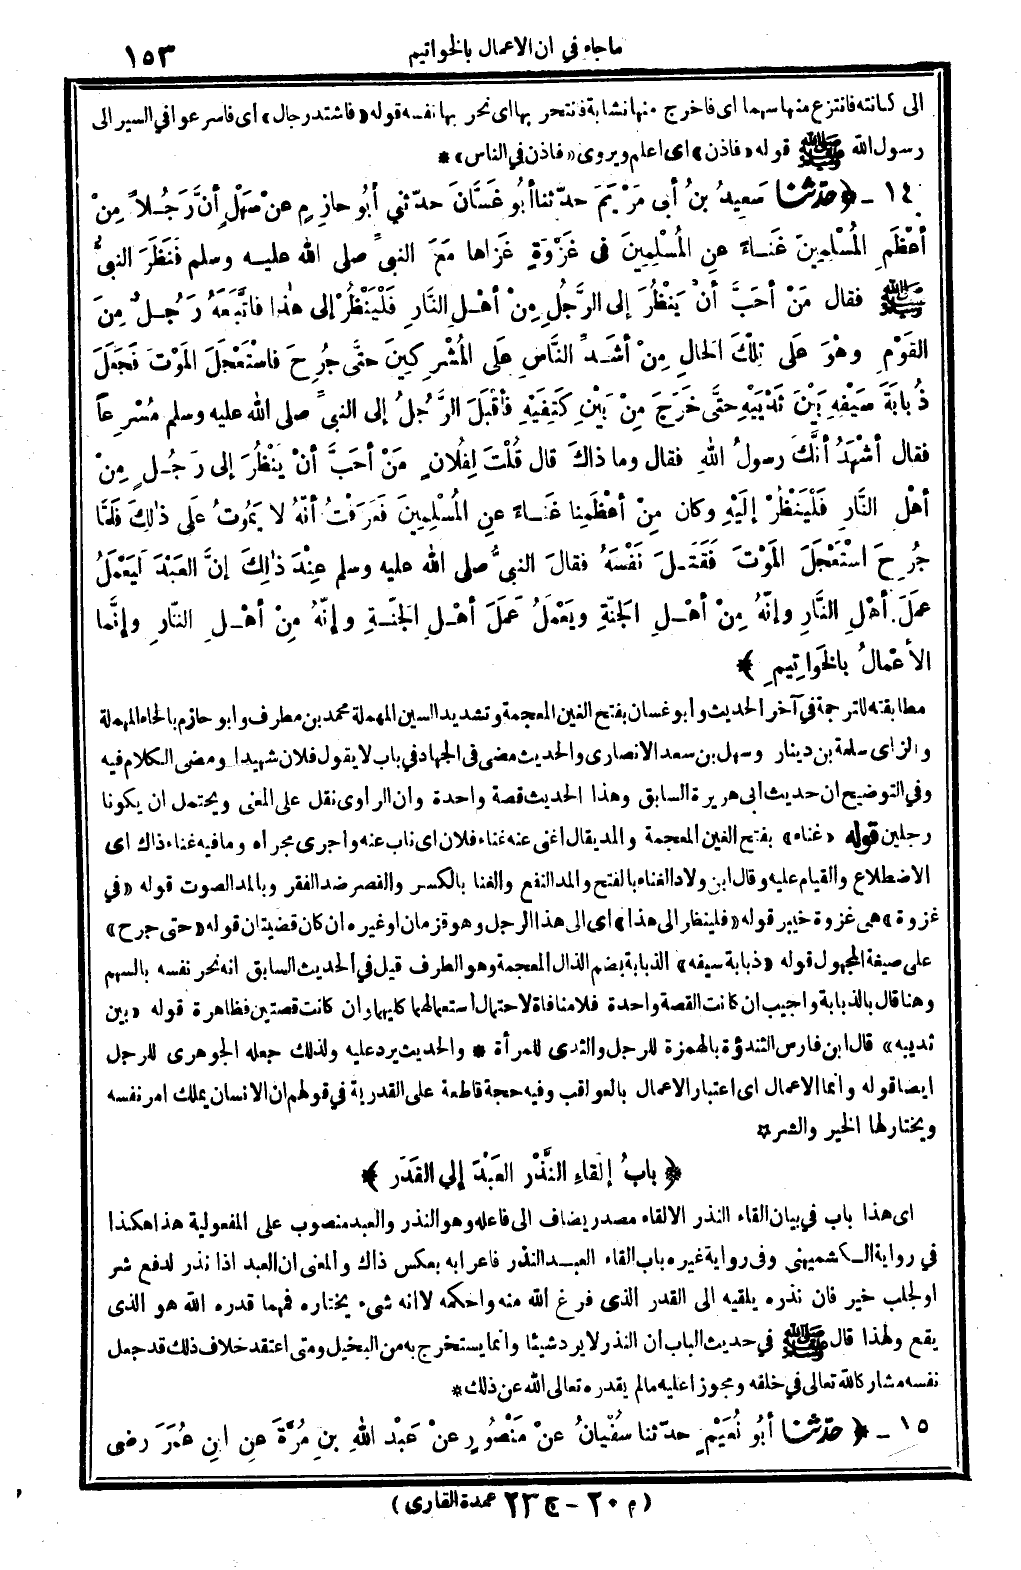 ما جاء في ان الاعمال بالخواتيم
١٥٣
الى كنانته فانتزع منها سهما اى فاخرج منها نشابة فانتحر بها اى نحر بها نفسه قوله «فاشتد رجال» اى فاسرعوا في السير الى
رسول الله ﷺ قوله «فاذن» اى اعلم ويروى «فاذن في الناس» *
١٤ ـ ﴿ حَدَّثنا سَعِيدُ بنُ أبى مَرْيَمَ حدّثنا أبُو غَسَّانَ حدّثني أبُو حازِمٍ عنْ سَهْلٍ أنَّ رَجُلاً مِنْ
أعْظَمِ المُسْلِمِينَ غَنَاءً عنِ المُسْلِمِينَ فى غَزْوَةٍ غَزَاها مَعَ النبىِّ صلى الله عليه وسلم فَنَظَرَ النبىُّ
ﷺ فقال مَنْ أحَبَّ أنْ يَنْظُرَ إلى الرَّجُلِ مِنْ أهْلِ النَّارِ فَلْيَنْظُرْ إلى هٰذا فاتَّبَعَهُ رَجُلٌ مِنَ
القَوْمِ وهْوَ عَلَى تِلْكَ الحالِ مِنْ أشَدِّ النَّاسِ عَلَى المُشْرِكِينَ حتَّى جُرِحَ فاسْتَعْجَلَ المَوْتَ فَجَعَلَ
ذُبابَةَ سَيْفِهِ بَيْنَ ثَدْيَيْهِ حتَّى خَرَجَ مِنْ بَيْنِ كَتِفَيْهِ فأقْبَلَ الرَّجُلُ إلى النبىِّ صلى الله عليه وسلم مُسْرِعاً
فقال أشْهَدُ أنَّكَ رسولُ اللهِ فقال وما ذاكَ قال قُلْتَ لِفُلانٍ مَنْ أحَبَّ أنْ يَنْظُرَ إلى رَجُلٍ مِنْ
أهْلِ النَّارِ فَلْيَنْظُرْ إلَيْهِ وكان مِنْ أعْظَمِنا غَنَاءً عنِ المُسْلِمِينَ فَعَرَفْتُ أنَّهُ لا يَمُوتُ عَلَى ذٰلِكَ فَلَمَّا
جُرِحَ اسْتَعْجَلَ المَوْتَ فَقَتَلَ نَفْسَهُ فقالَ النبىُّ صلى الله عليه وسلم عِنْدَ ذٰلِكَ إنَّ العَبْدَ لَيَعْمَلُ
عمَلَ أهْلِ النَّارِ وإنَّهُ مِنْ أهْلِ الجَنَّةِ ويَعْمَلُ عَمَلَ أهْلِ الجَنَّةِ وإنَّهُ مِنْ أهْلِ النَّارِ وإنَّما
الأعْمالُ بالخَوَاتِيمِ ﴾ *
مطابقته للترجمة في آخر الحديث وأبو غسان بفتح الغين المعجمة وتشديد السين المهملة محمد بن مطرف وابو حازم بالحاء المهملة
والزاى سلمة بن دينار وسهل بن سعد الانصارى والحديث مضى فى الجهاد في باب لا يقول فلان شهيد ومضى الكلام فيه
وفي التوضيح ان حديث ابى هريرة السابق وهذا الحديث قصة واحدة وان الراوى نقل على المعنى ويحتمل ان يكونا
رجلين قوله «غناء» بفتح الغين المعجمة والمد يقال اغنى عنه غناء فلان اى ناب عنه واجرى مجراه وما فيه غناء ذاك اى
الاضطلاع والقيام عليه وقال ابن ولاد الغناء بالفتح والمد النفع والغنا بالكسر والقصر ضد الفقر وبالمد الصوت قوله «في
غزوة» هى غزوة خيبر قوله «فلينظر الى هذا» اى الى هذا الرجل وهو قزمان او غيره ان كان قضيتان قوله «حتى جرح»
على صيغة المجهول قوله «ذبابة سيفه» الذبابة بضم الذال المعجمة وهو الطرف قيل في الحديث السابق انه نحر نفسه بالسهم
وهنا قال بالذبابة واجيب ان كانت القصة واحدة فلا منافاة لاحتمال استعمالهما كليهما وان كانت قصتين فظاهرة قوله «بين
ثدييه» قال ابن فارس الثندؤة بالهمزة للرجل والثدى للمرأة * والحديث يرد عليه ولذلك جعله الجوهرى للرجل
ايضا قوله وانما الاعمال اى اعتبار الاعمال بالعواقب وفيه حجة قاطعة على القدرية في قولهم ان الانسان يملك امر نفسه
ويختار لها الخير والشر *
﴿ بابُ إلْقاءِ النَّذْرِ العَبْدَ إلى القَدَرِ ﴾ *
اى هذا باب في بيان القاء النذر الالقاء مصدر يضاف الى فاعله وهو النذر والعبد منصوب على المفعولية هذا هكذا
في رواية الكشميهنى وفى رواية غيره باب القاء العبد النذر فاعرابه بعكس ذاك والمعنى ان العبد اذا نذر لدفع شر
او لجلب خير فان نذره يلقيه الى القدر الذى فرغ الله منه واحكمه لا انه شىء يختاره فمهما قدره الله هو الذى
يقع ولهذا قال ﷺ في حديث الباب ان النذر لا يرد شيئا وانما يستخرج به من البخيل ومتى اعتقد خلاف ذلك قد جعل
نفسه مشاركا لله تعالى في خلقه ومجوزا عليه مالم يقدره تعالى الله عن ذلك *
١٥ ـ ﴿ حَدَّثنا أبُو نُعَيْمٍ حدّثنا سُفْيانُ عنْ مَنْصُورٍ عنْ عَبْدِ اللهِ بنِ مُرَّةَ عنِ ابنِ عُمَرَ رضى
(م ٢٠ ـ ج ٢٣ عمدة القارى)